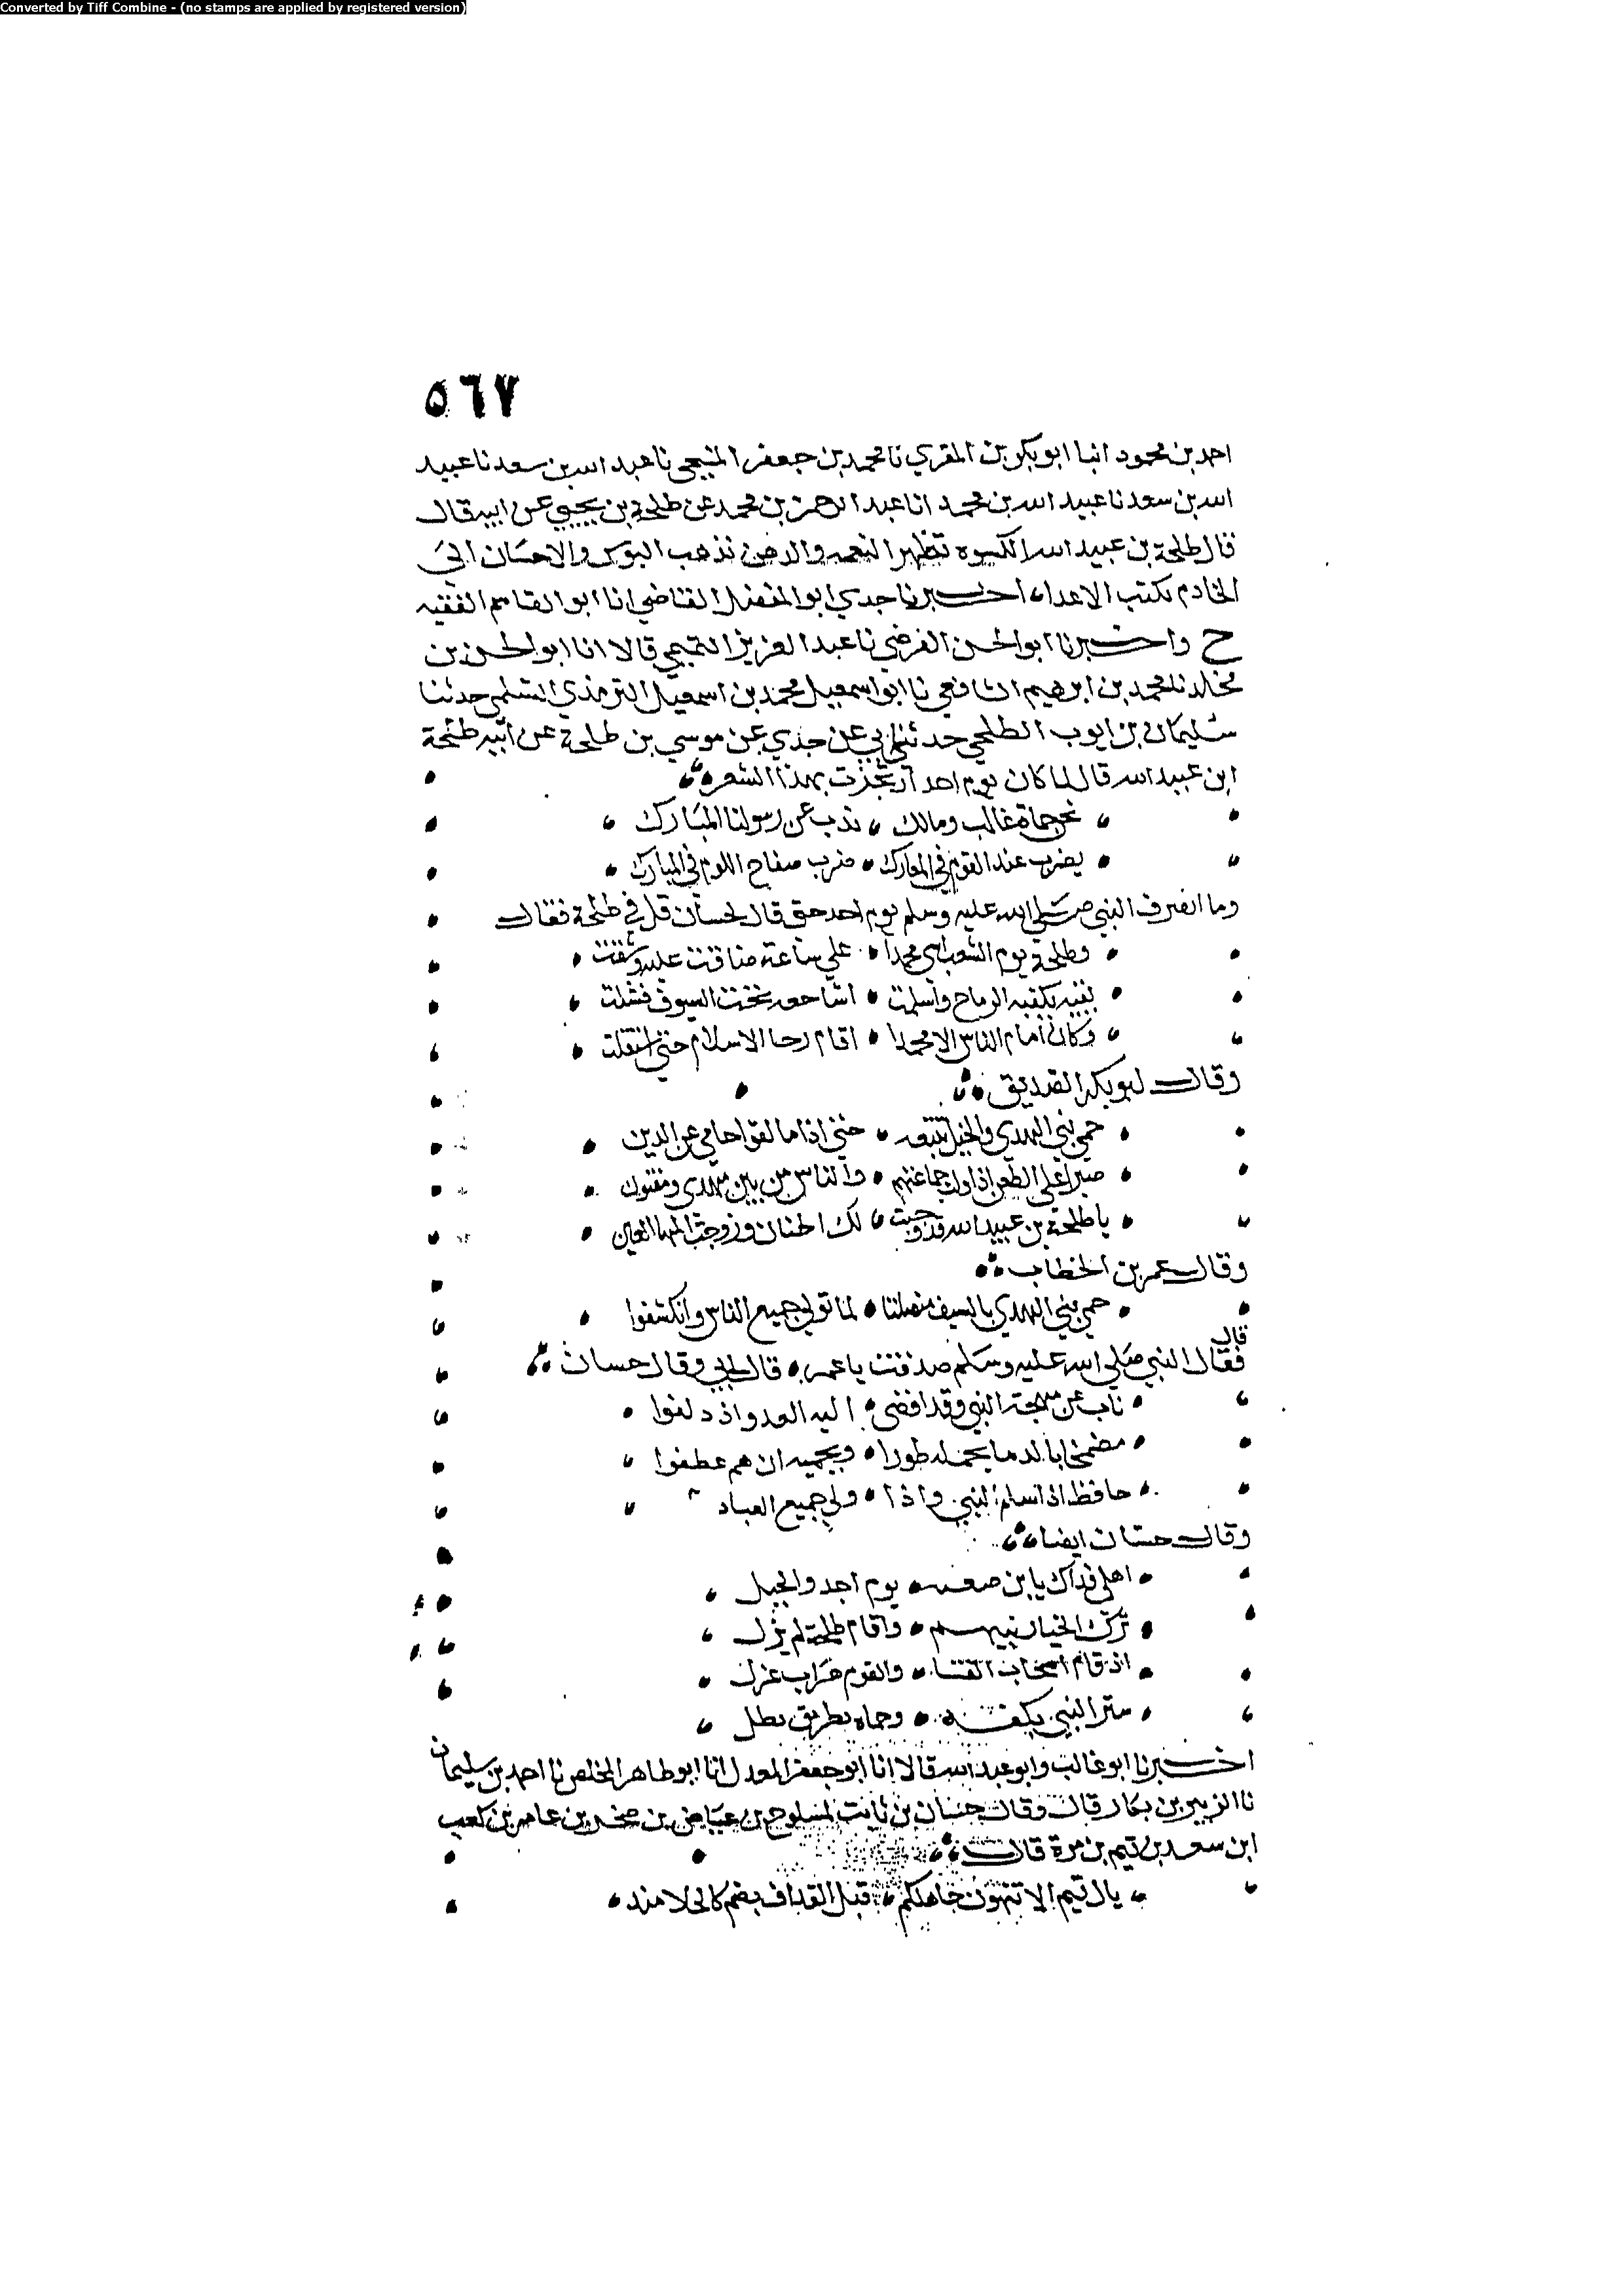 Converted by Tiff Combine - (no stamps are applied by registered version)
٥٦٧
احمد بن محمود انبا ابو بكر بن المقري نا محمد بن جعفر المنبجي نا عبد الله بن سعد نا عبيد
الله بن سعد نا عبيد الله بن محمد انا عبد الرحمن بن محمد عن طلحة بن يحيي عن ابيه قال
قال طلحة بن عبيد الله الكسوه تظهر النعمه والدهن تذهب البوس والاحسان الى
الخادم يكتب الاعداء اخبرنا جدي ابو المفضل القاضي انا ابو القاسم الفقيه
ح واخبرنا ابو الحسن الفرضي نا عبد العزيز التميمي قالا انا ابو الحسن بن
مخلد نا محمد بن ابرهيم الشافعي نا ابو اسمعيل محمد بن اسمعيل الترمذي السلمي حدثنا
سليمان بن ايوب الطلحي حدثني ابي عن جدي عن موسي بن طلحة عن ابيه طلحة
ابن عبيد الله قال لما كان يوم احد ارتجزت بهذا الشعر
نحن حماة غالب ومالك نذب عن رسولنا المبارك
يضرب عند القوم في المعارك ضرب صفاح الكوم في المبارك
وما انصرف النبي صلى الله عليه وسلم يوم احد حتى قال لحسان قل في طلحة فقال
وطلحة يوم الشعب اسى محمدا علي ساعة ضاقت عليه وشقت
يقيه بكفيه الرماح واسلمت اشاجعه تحت السيوف فشلت
وكان امام الناس الا محمدا اقام رحا الاسلام حتى استقلت
وقال ابو بكر الصديق
حمي نبي الهدي والخيل تتبعه حتى اذا ما لقوا حامي عن الدين
صبرا على الطعن اذ ولت جماعتهم والناس من بين مهدي ومفتون
يا طلحة بن عبيد الله قد وجبت لك الجنان وزوجت المها العين
وقال عمر بن الخطاب
حمي نبي الهدي بالسيف منصلتا لما تولي جميع الناس وانكشفوا
قال
فقال النبي صلي الله عليه وسلم صدقت يا عمر قال ابي وقال حسان
ناب عن مهجة النبي وقد افضى اليه العدو اذ دلفوا
مضمخا بالدما يحمله طورا ويحميه ان هم عطفوا
حافظ اذ اسلم النبي واذا ولي جميع العباد
وقال حسان ايضا
اهلي فداك يا بن صعبه يوم احد والجبل
ترك الخيار نبيهم واقام طلحة لم يزل
اذ قام اصحاب القنا والقوم ضراب عزل
ستر النبي بكفه وحماه بطريق بطل
اخبرنا ابو غالب وابو عبد الله قالا انا ابو جعفر المعدل انا ابو طاهر المخلص نا احمد بن سليمان
نا الزبير بن بكار قال وقال حسان بن ثابت لمسلوح بن عياض بن صخر بن عامر بن كعب
ابن سعد بن تيم بن مرة قال
يال تيم الا تنهون جاهلكم قبل القذاف بصم كالجلاميد